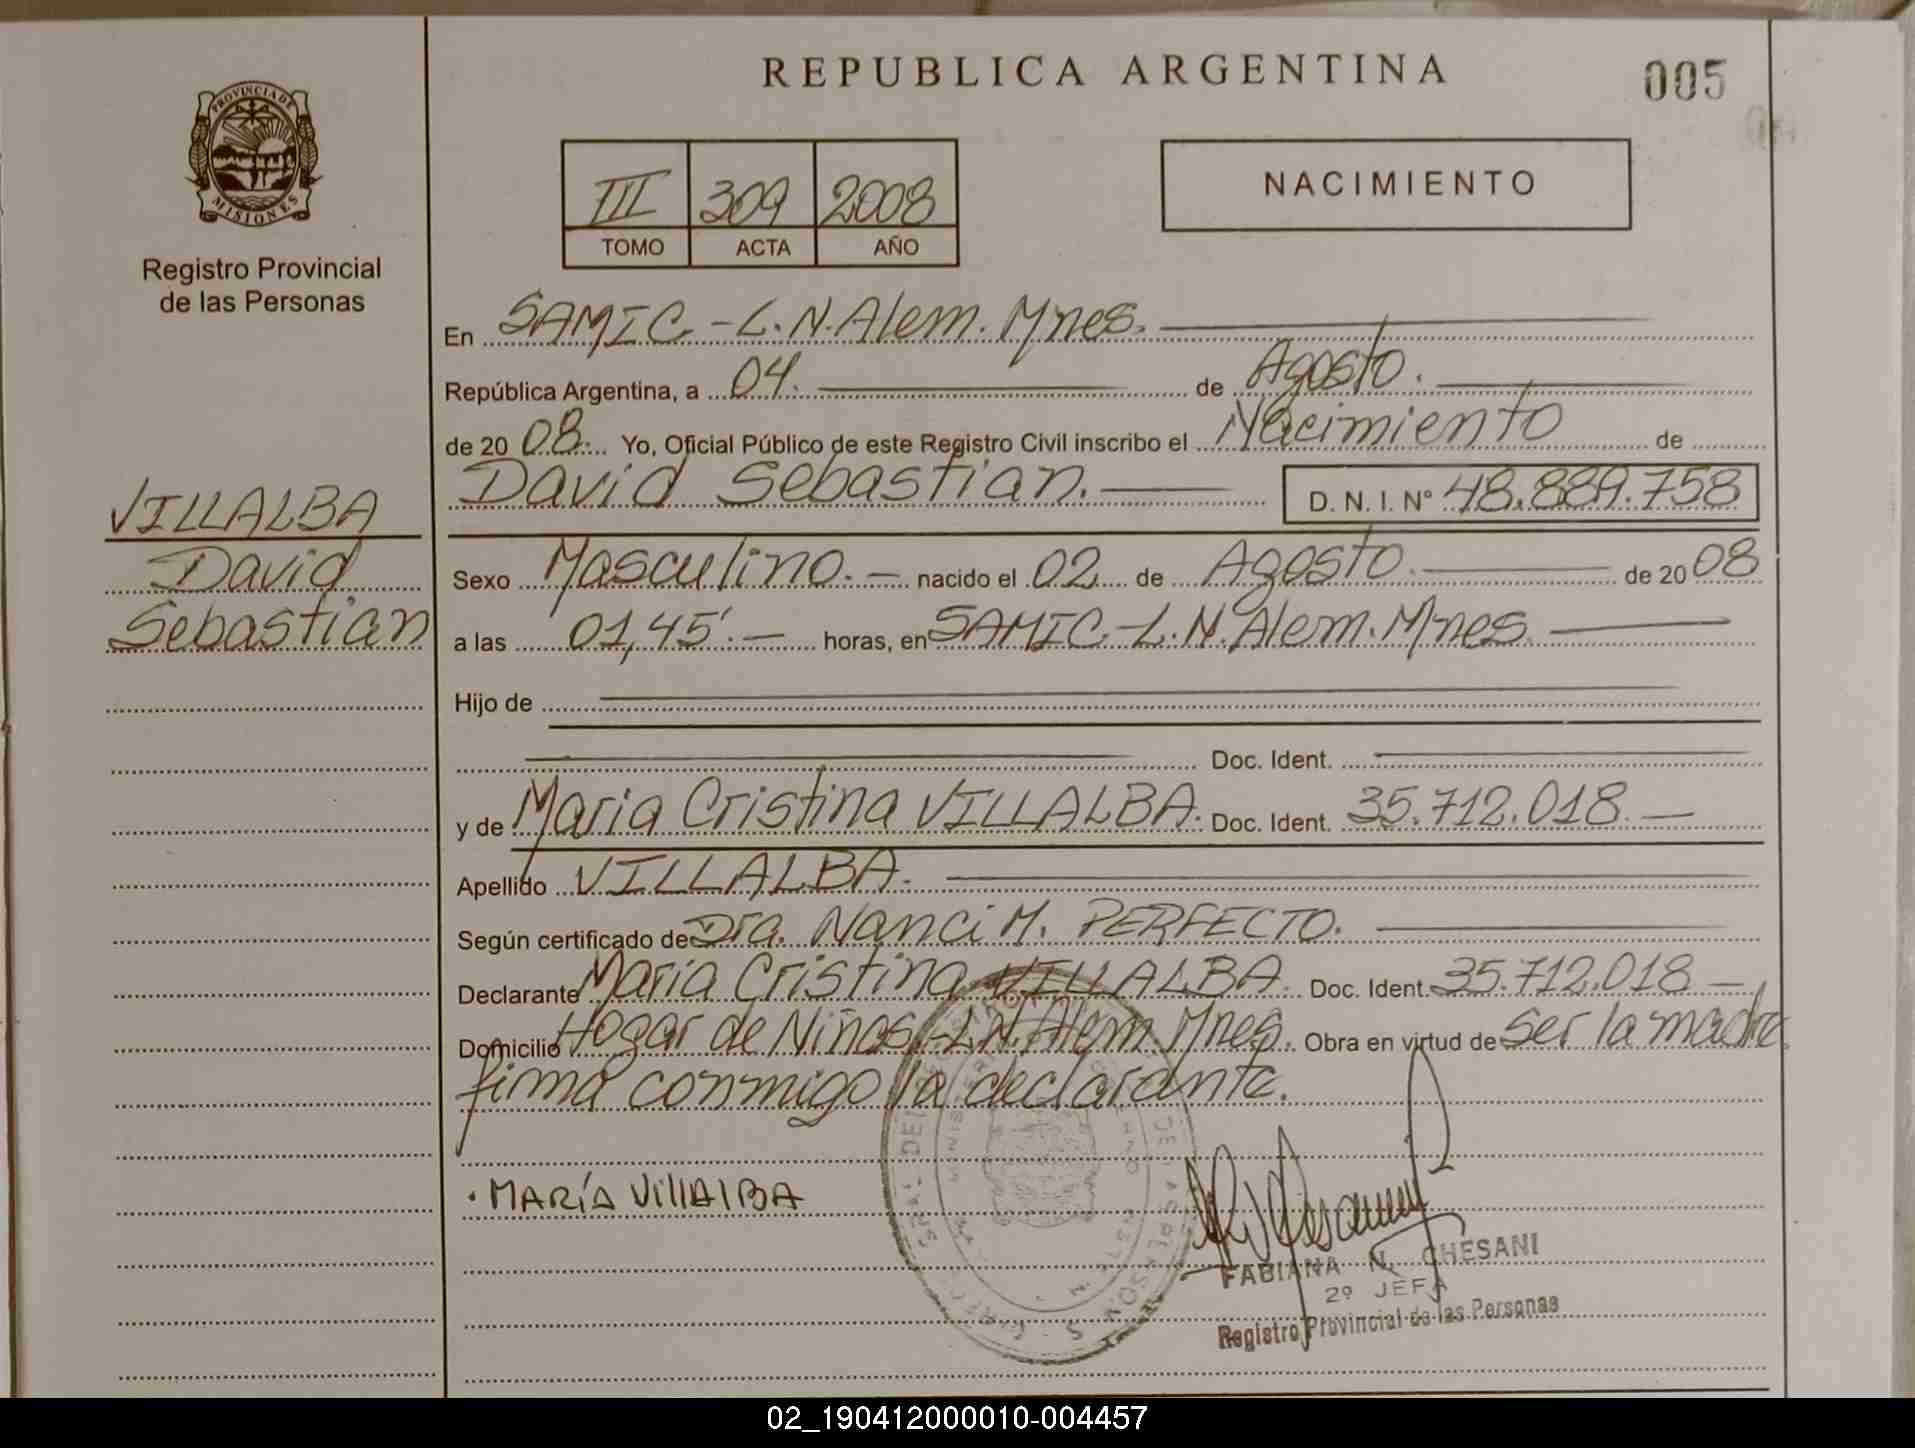 REPUBLICA ARGENTINA
005
PROVINCIA DE
MISIONES
Registro Provincial
de las Personas
III 309 2008
TOMO ACTA AÑO
NACIMIENTO
En SAMIC.-L.N.Alem. Mnes.
República Argentina, a 04. de Agosto.
de 20 08. Yo, Oficial Público de este Registro Civil inscribo el Nacimiento de
David Sebastian. D. N. I. Nº 48.889.758
VILLALBA
David
Sebastian
Sexo Masculino. nacido el 02 de Agosto. de 20 08
a las 01,45'. horas, en SAMIC.-L.N. Alem. Mnes.
Hijo de
Doc. Ident.
y de Maria Cristina VILLALBA. Doc. Ident. 35.712.018.
Apellido VILLALBA.
Según certificado de Dra. Nanci M. PERFECTO.
Declarante Maria Cristina VILLALBA. Doc. Ident. 35.712.018
Domicilio Hogar de Niños.-L.N.Alem. Mnes. Obra en virtud de ser la madre.
firma conmigo la declarante.
. MARÍA VillAlBA
FABIANA N. CHESANI
2º JEFA
Registro Provincial de las Personas
02_190412000010-004457